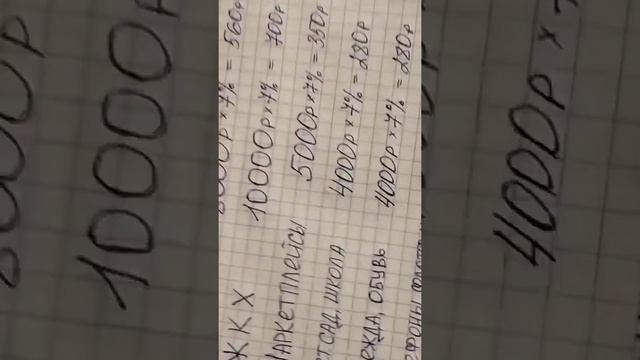 000р × 7% = 560р
ЖКХ 10000р × 7% = 700р
МАРКЕТПЛЕЙСЫ 5000р × 7% = 350р
ЕТ САД, ШКОЛА 4000р × 7% = 280р
ЕЖДА, ОБУВЬ 4000р × 7% = 280р
10000р
4000р ×